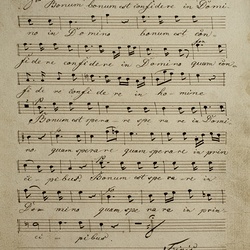 Bonum bonum est confidere in Domi-
no in Domino bonum est con-
fidere confidere in Domino quam con-
fidere confidere in homine
Bonum est sperare sperare in Domi-
no. quam sperare quam sperare in prin-
cipibus. Bonum est sperare in
Domino quam sperare in prin-
cipibus